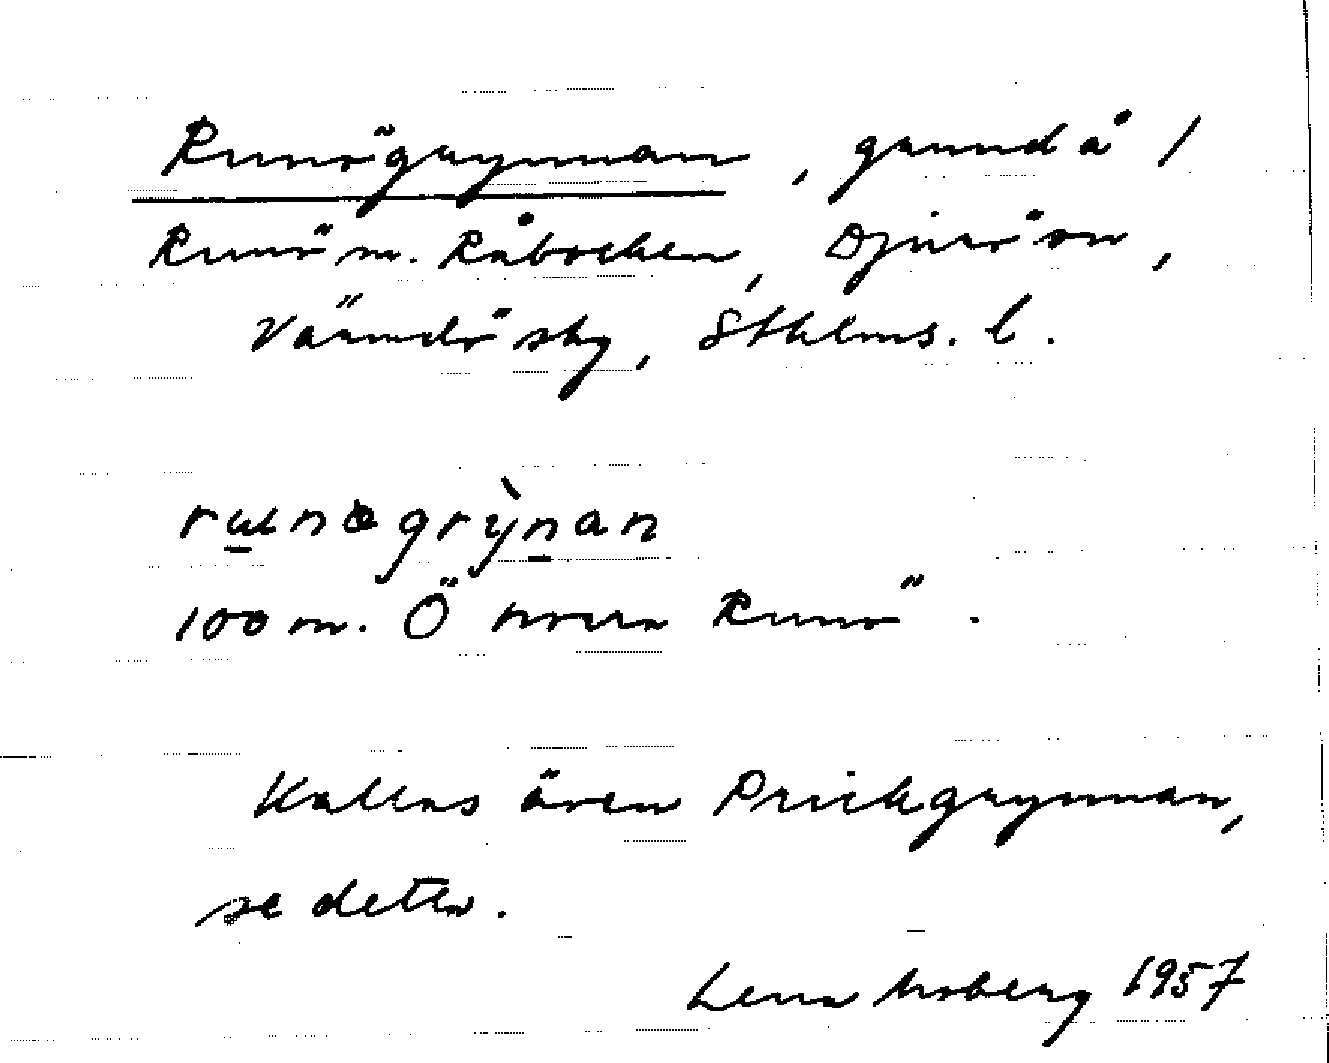 Runögrynnan, grund å /
Runö m. Råbocken, Djurön,
Värmdö sky, Sthlms. l.
runögrỳnan
100 m. Ö norra Runö.
Kallas även Prickgrynnan,
se detta.
Lena Moberg 1957